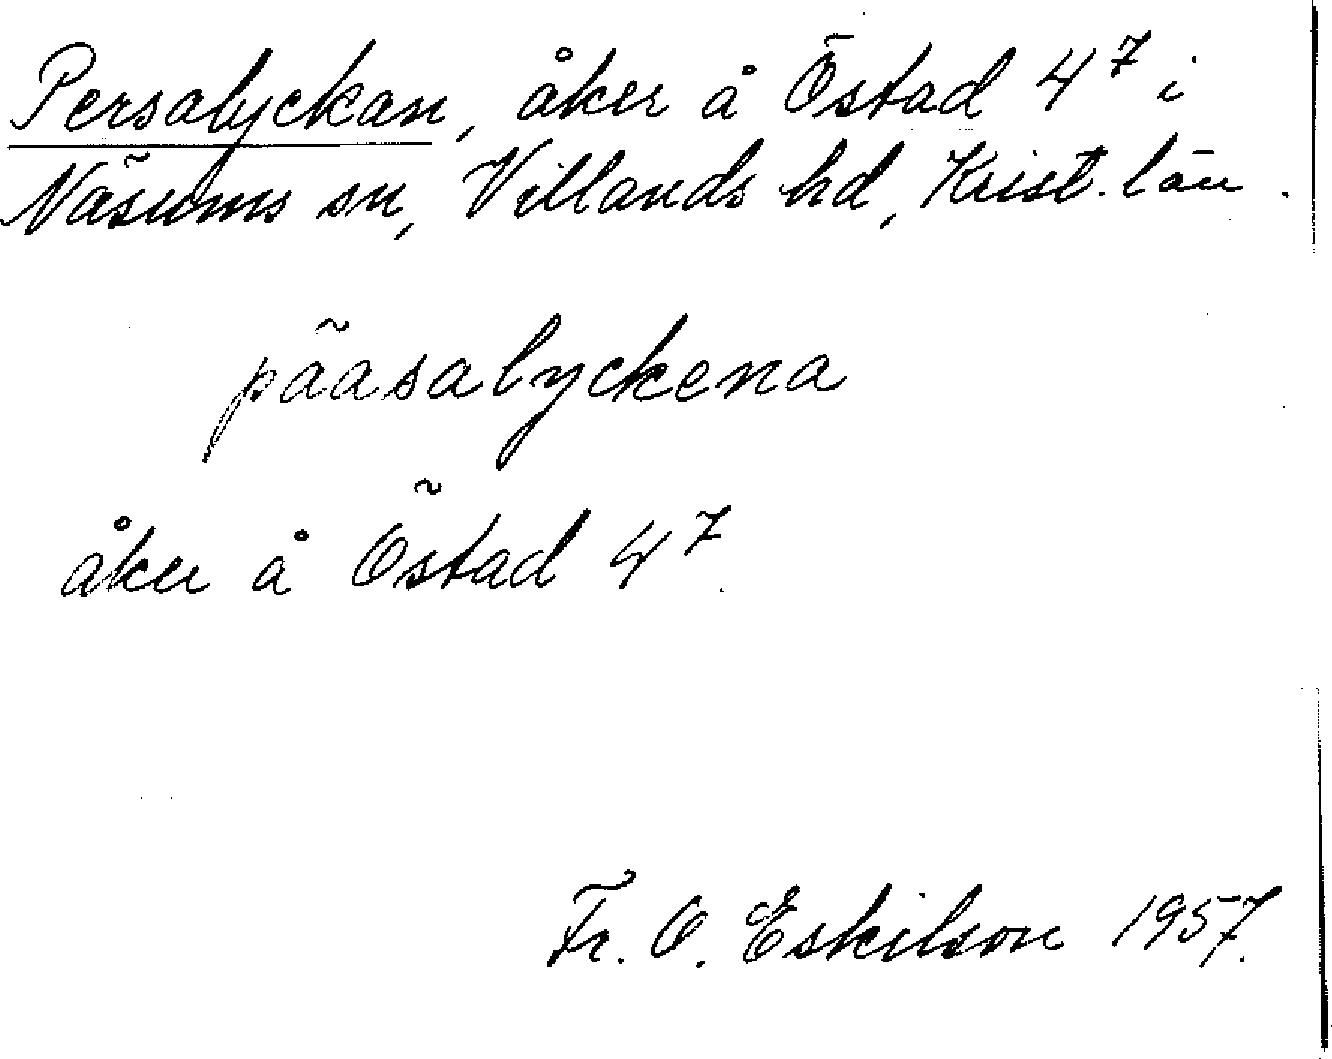 Persalyckan, åker å Östad 4⁷ i
Näsums sn, Villands hd, Krist. län.
pääsalyckena
åker å Östad 4⁷.
Fr. O. Eskilson 1957.